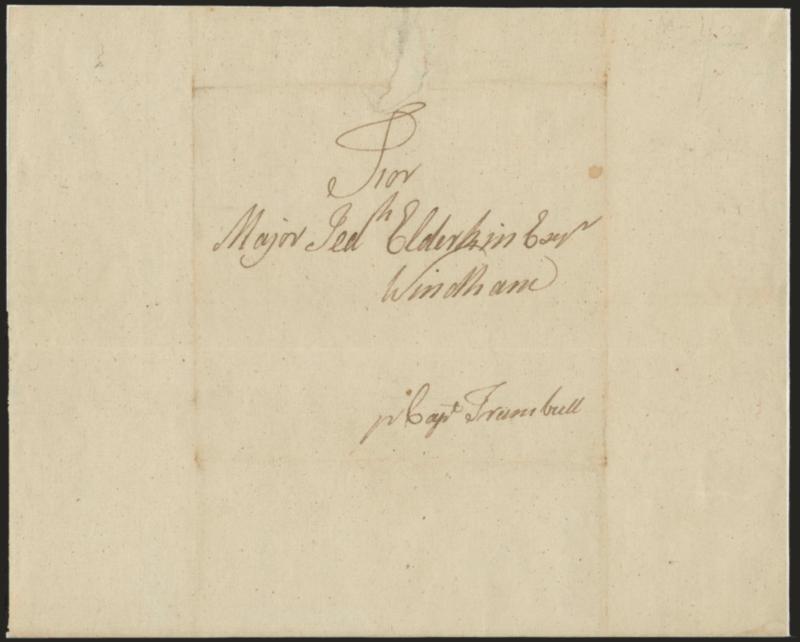 For
Major Jedh Elderkin Esqr
Windham
pr Capt Trumbull